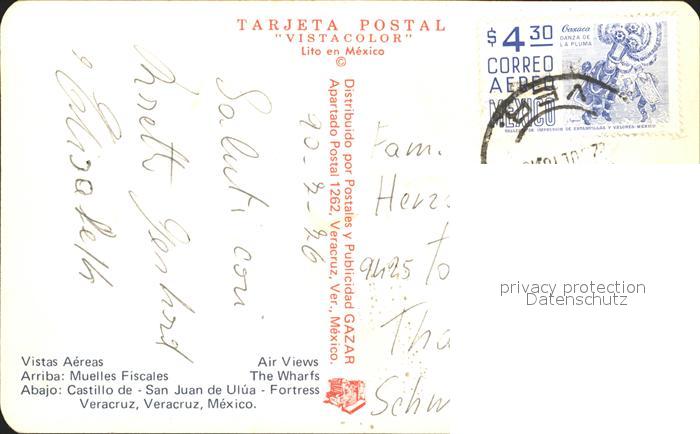 TARJETA POSTAL
"VISTACOLOR"
Lito en México
©
Distribuido por Postales y Publicidad GAZAR
Apartado Postal 1262, Veracruz, Ver., México.
Saluti cari
e Elisabeth
Vistas Aéreas Air Views
Arriba: Muelles Fiscales The Wharfs
Abajo: Castillo de - San Juan de Ulúa - Fortress
Veracruz, Veracruz, México.
$4.30
Oaxaca
DANZA DE
LA PLUMA
CORREO
AEREO
MEXICO
TALLER DE IMPRESION DE ESTAMPILLAS Y VALORES-MEXICO
Fam.
Herz
9425 To
Tha
Schw
privacy protection
Datenschutz